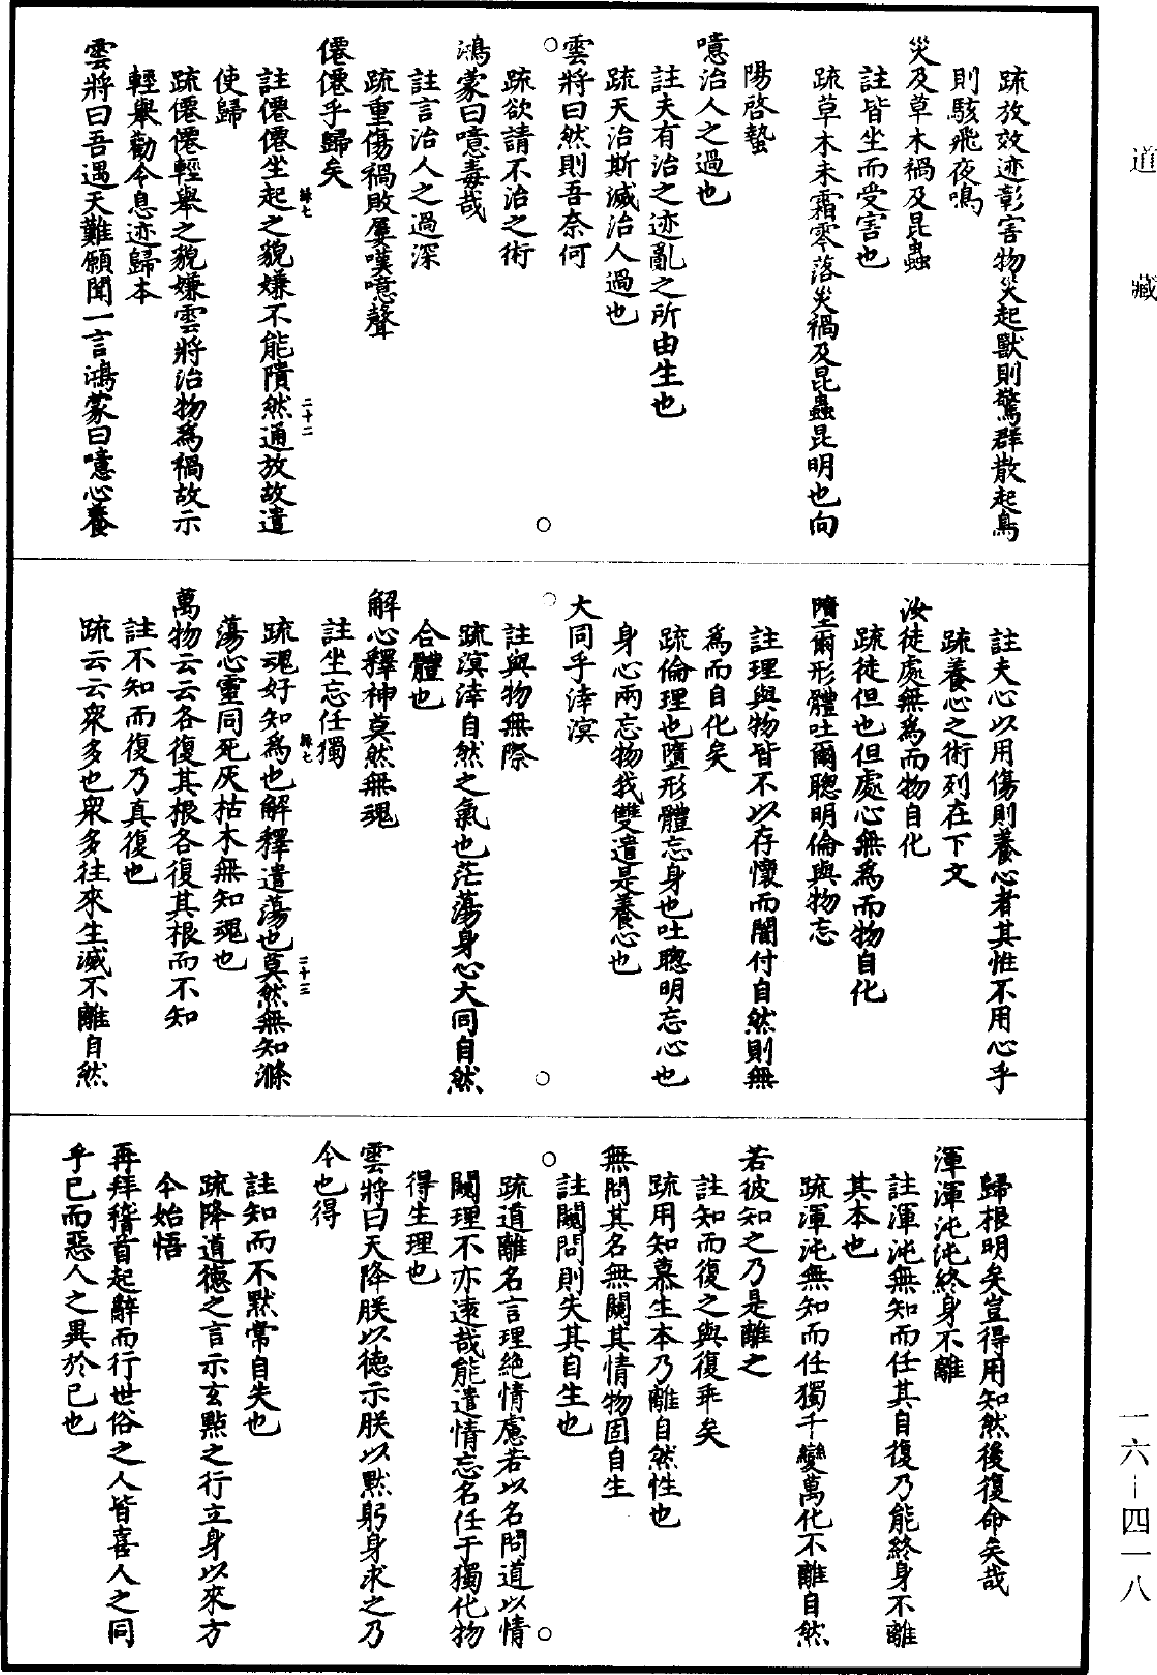 道藏
疏放效迹彰害物災起獸則驚群散起鳥
則駭飛夜鳴
災及草木禍及昆蟲
註皆坐而受害也
疏草木未霜零落災禍及昆蟲昆明也向
陽啓蟄
噫治人之過也
註夫有治之迹亂之所由生也
疏天治斯滅治人過也
雲將曰然則吾奈何
疏欲請不治之術
鴻蒙曰噫毒哉
註言治人之過深
疏重傷禍敗屢嘆噫聲
僊僊乎歸矣
註僊僊坐起之貌嫌不能隤然通放故遣
使歸
疏僊僊輕舉之貌嫌雲將治物為禍故示
輕舉勸令息迹歸本
雲將曰吾遇天難願聞一言鴻蒙曰噫心養
二十二
註夫心以用傷則養心者其惟不用心乎
疏養心之術列在下文
汝徒處無為而物自化
疏徒但也但處心無為而物自化
墮爾形體吐爾聰明倫與物忘
註理與物皆不以存懷而闇付自然則無
為而自化矣
疏倫理也墮形體忘身也吐聰明忘心也
身心兩忘物我雙遣是養心也
大同乎涬溟
註與物無際
疏溟涬自然之氣也茫蕩身心大同自然
合體也
解心釋神莫然無魂
註坐忘任獨
疏魂好知為也解釋遣蕩也莫然無知滌
蕩心靈同死灰枯木無知魂也
萬物云云各復其根各復其根而不知
註不知而復乃真復也
疏云云衆多也衆多往來生滅不離自然
二十三
歸根明矣豈得用知然後復命矣哉
渾渾沌沌終身不離
註渾沌無知而任其自復乃能終身不離
其本也
疏渾沌無知而任獨千變萬化不離自然
若彼知之乃是離之
註知而復之與復乖矣
疏用知慕生本乃離自然性也
無問其名無闚其情物固自生
註闚問則失其自生也
疏道離名言理絕情慮若以名問道以情
闚理不亦遠哉能遣情忘名任于獨化物
得生理也
雲將曰天降朕以德示朕以默躬身求之乃
今也得
註知而不默常自失也
疏降道德之言示玄默之行立身以來方
今始悟
再拜稽首起辭而行世俗之人皆喜人之同
乎已而惡人之異於已也
一六－四一八